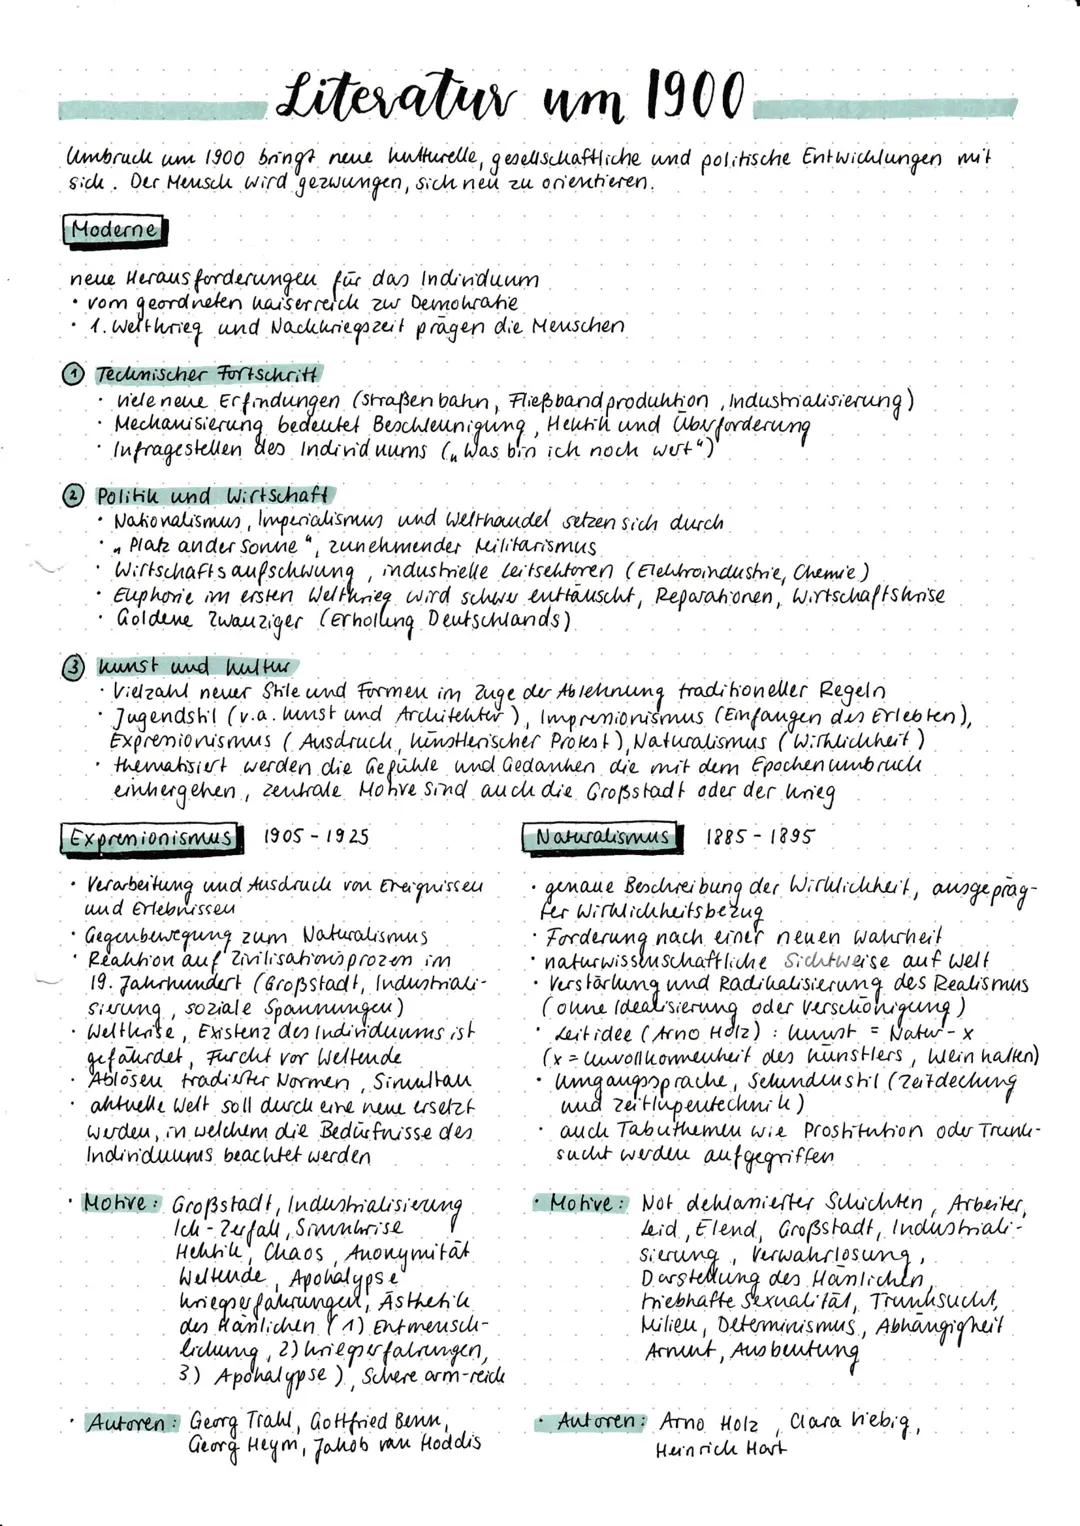 Literatur um 1900
Umbruch um 1900 bringt neue kulturelle, gesellschaftliche und politische Entwicklungen mit
sich. Der Mensch wird gezwungen, sich neu zu orientieren.
Moderne
neue Herausforderungen für das Individuum
• vom geordneten Kaiserreich zur Demokratie
• 1. Weltkrieg und Nachkriegszeit prägen die Menschen
① Technischer Fortschritt
• viele neue Erfindungen (Straßenbahn, Fließbandproduktion, Industrialisierung)
• Mechanisierung bedeutet Beschleunigung, Hektik und Überforderung
• Infragestellen des Individuums („Was bin ich noch wert“)
② Politik und Wirtschaft
• Nationalismus, Imperialismus und Welthandel setzen sich durch
• „Platz an der Sonne“, zunehmender Militarismus
• Wirtschaftsaufschwung, industrielle Leitsektoren (Elektroindustrie, Chemie)
• Euphorie im ersten Weltkrieg wird schwer enttäuscht, Reparationen, Wirtschaftskrise
• Goldene Zwanziger (Erhollung Deutschlands)
③ Kunst und Kultur
• Vielzahl neuer Stile und Formen im Zuge der Ablehnung traditioneller Regeln
• Jugendstil (v.a. Kunst und Architektur), Impressionismus (Einfangen des Erlebten),
Expressionismus (Ausdruck, künstlerischer Protest), Naturalismus (Wirklichkeit)
• thematisiert werden die Gefühle und Gedanken die mit dem Epochenumbruch
einhergehen, zentrale Motive sind auch die Großstadt oder der Krieg
Expressionismus 1905 - 1925
• Verarbeitung und Ausdruck von Ereignissen
und Erlebnissen
• Gegenbewegung zum Naturalismus
• Reaktion auf Zivilisationsprozess im
19. Jahrhundert (Großstadt, Industriali-
sierung, soziale Spannungen)
• Weltkrise, Existenz des Individuums ist
gefährdet, Furcht vor Weltende
• Ablösen tradierter Normen, Simultan
• aktuelle Welt soll durch eine neue ersetzt
werden, in welchem die Bedürfnisse des
Individuums beachtet werden
• Motive: Großstadt, Industrialisierung
Ich-Zerfall, Sinnkrise
Hektik, Chaos, Anonymität
Weltende, Apokalypse
Kriegserfahrungen, Ästhetik
des Hässlichen (1) Entmensch-
lichung, 2) Kriegserfahrungen,
3) Apokalypse), Schere arm-reich
• Autoren: Georg Trakl, Gottfried Benn,
Georg Heym, Jakob van Hoddis
Naturalismus 1885 - 1895
• genaue Beschreibung der Wirklichkeit, ausgepräg-
ter Wirklichkeitsbezug
• Forderung nach einer neuen Wahrheit
• naturwissenschaftliche Sichtweise auf Welt
• Verstärkung und Radikalisierung des Realismus
(ohne Idealisierung oder Verschönigung)
• Leitidee (Arno Holz): Kunst = Natur - x
(x = Unvollkommenheit des Künstlers, klein halten)
• Umgangssprache, Sekundenstil (Zeitdeckung
und Zeitlupentechnik)
• auch Tabuthemen wie Prostitution oder Trunk-
sucht werden aufgegriffen
• Motive: Not deklassierter Schichten, Arbeiter,
Leid, Elend, Großstadt, Industriali-
sierung, Verwahrlosung,
Darstellung des Hässlichen,
triebhafte Sexualität, Trunksucht,
Milieu, Determinismus, Abhängigkeit
Armut, Ausbeutung
• Autoren: Arno Holz, Clara Viebig,
Heinrich Hart